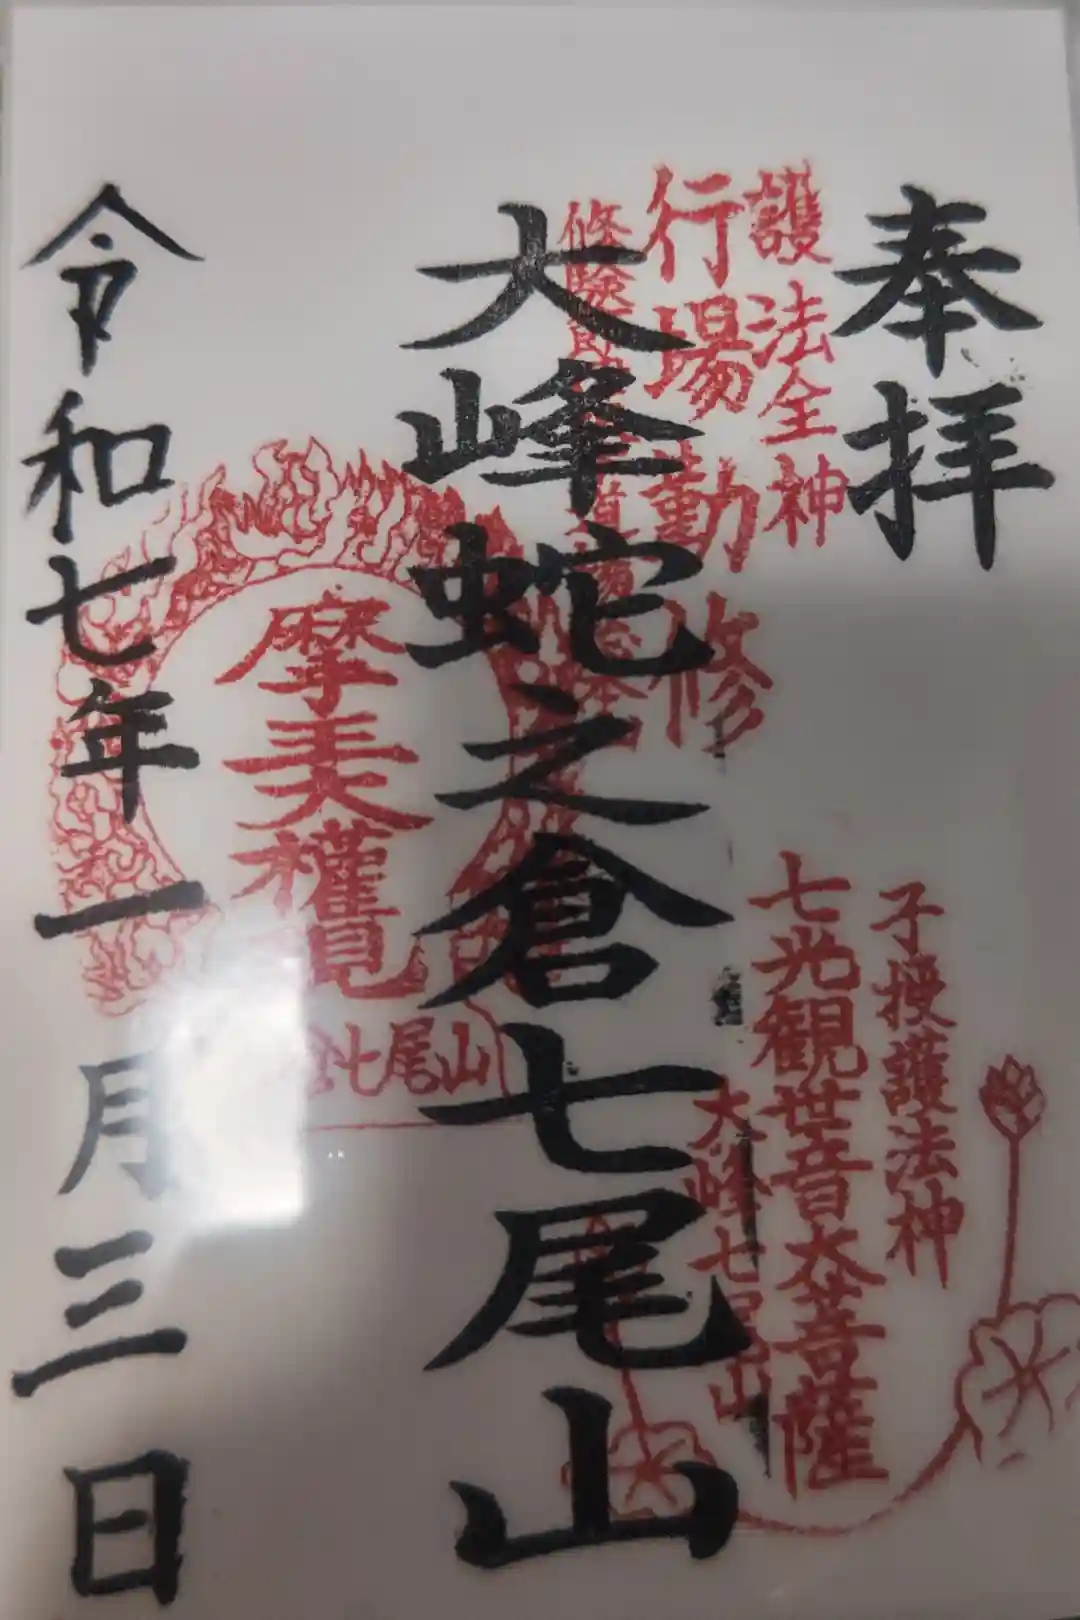 奉拝
護法全神
行場勤修
大峰蛇之倉七尾山
子授護法神
七光観世音大菩薩
大峰七尾山
七尾山
令和七年一月三日